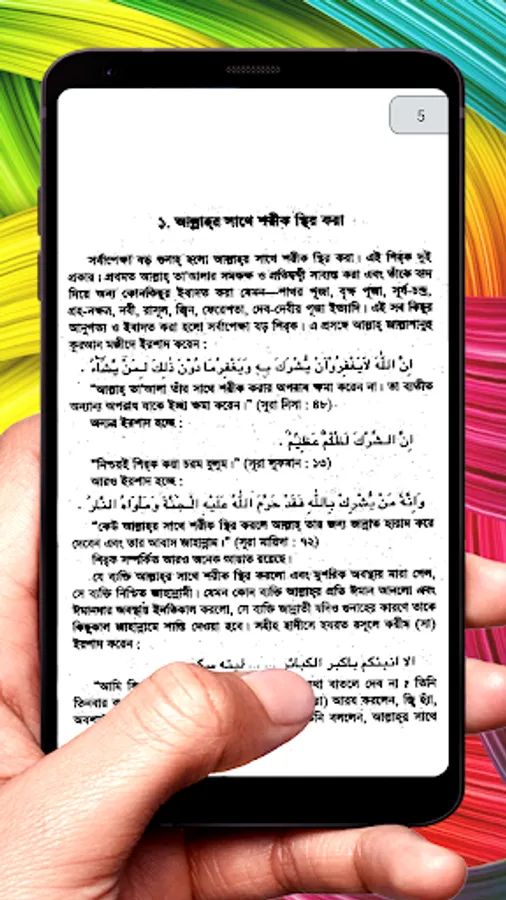 5
১. আল্লাহ্‌র সাথে শরীক স্থির করা
সর্বাপেক্ষা বড় গুনাহ্ হলো আল্লাহ্‌র সাথে শরীক স্থির করা। এই শির্ক দুই
প্রকার। প্রথমত আল্লাহ্ তা'আলার সমকক্ষ ও প্রতিদ্বন্দ্বী সাব্যস্ত করা এবং তাঁকে বাদ
দিয়ে অন্য কোনকিছুর ইবাদত করা যেমন—পাথর পূজা, বৃক্ষ পূজা, সূর্য-চন্দ্র,
গ্রহ-নক্ষত্র, নবী, রাসূল, জ্বিন, ফেরেশতা, দেব-দেবীর পূজা ইত্যাদি। এই সব কিছুর
আনুগত্য ও ইবাদত করা হলো সর্বাপেক্ষা বড় শির্ক। এ প্রসঙ্গে আল্লাহ্ জাল্লাশানুহু
কুরআন মজীদে ইরশাদ করেন :
إِنَّ اللهَ لَايَغْفِرُ أَنْ يُّشْرَكَ بِهٖ وَيَغْفِرُ مَا دُوْنَ ذٰلِكَ لِمَنْ يَّشَآءُ .
“আল্লাহ্ তা'আলা তাঁর সাথে শরীক করার অপরাধ ক্ষমা করেন না। তা ব্যতীত
অন্যান্য অপরাধ যাকে ইচ্ছা ক্ষমা করেন।” (সূরা নিসা : ৪৮)
অন্যত্র ইরশাদ হচ্ছে :
إِنَّ الشِّرْكَ لَظُلْمٌ عَظِيْمٌ .
“নিশ্চয়ই শির্ক করা চরম যুলুম।” (সূরা লুকমান : ১৩)
আরও ইরশাদ হচ্ছে :
وَإِنَّهٗ مَنْ يُّشْرِكْ بِاللهِ فَقَدْ حَرَّمَ اللهُ عَلَيْهِ الْجَنَّةَ وَمَأْوَاهُ النَّارُ .
“কেউ আল্লাহ্‌র সাথে শরীক স্থির করলে আল্লাহ্ তার জন্য জান্নাত হারাম করে
দেবেন এবং তার আবাস জাহান্নাম।” (সূরা মায়িদা : ৭২)
শির্ক সম্পর্কিত আরও অনেক আয়াত রয়েছে।
যে ব্যক্তি আল্লাহ্‌র সাথে শরীক স্থির করলো এবং মুশরিক অবস্থায় মারা গেল,
সে ব্যক্তি নিশ্চিত জাহান্নামী। যেমন কোন ব্যক্তি আল্লাহ্‌র প্রতি ঈমান আনলো এবং
ঈমানদার অবস্থায় ইনতিকাল করলো, সে ব্যক্তি জান্নাতী যদিও গুনাহের কারণে তাকে
কিছুকাল জাহান্নামে শাস্তি দেওয়া হবে। সহীহ হাদীসে হযরত রসূলে করীম (সা)
ইরশাদ করেন :
الا انبئكم باكبر الكبائر ... ...
“আমি কি বাতলে দেব না ? তিনি
তিনবার আরয করলেন, জ্বি হ্যাঁ,
বললেন, আল্লাহ্‌র সাথে